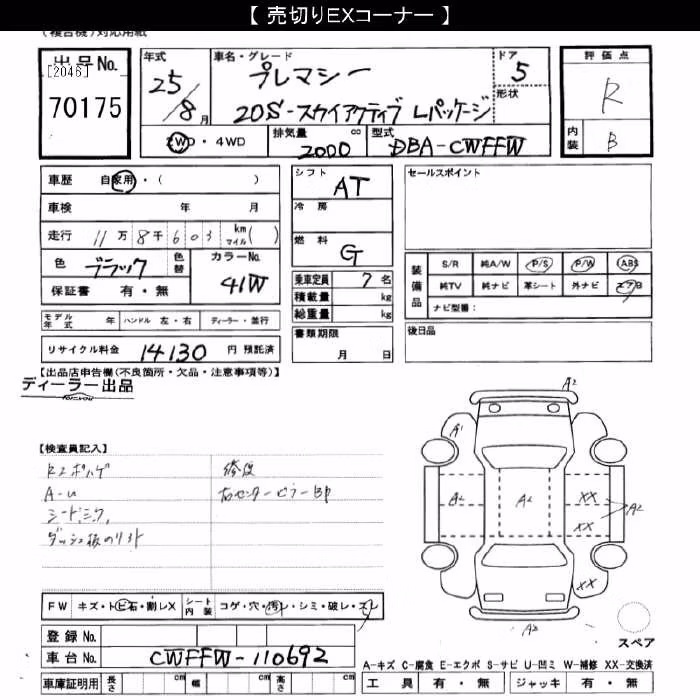 【 売切りEXコーナー 】
(複合機)対応用紙
出品No.
[2046]
70175
年式
25/8月
車名・グレード
プレマシー
20S-スカイアクティブ Lパッケージ
ドア
5
形状
評価点
R
内装
B
2WD・4WD
排気量 cc
2000
型式
DBA-CWFFW
車歴 自家用・( )
車検 年 月
走行 11万8千603 km マイル( )
色 ブラック 色替
カラーNo.
41W
保証書 有・無
モデル年式 年 ハンドル 左・右 ディーラー・並行
リサイクル料金 14130 円 預託済
シフト
AT
冷房
燃料
G
乗車定員 7名
積載量 kg
総重量 kg
書類期限
月 日
セールスポイント
装備品
S/R 純A/W P/S P/W ABS
純TV 純ナビ 革シート 外ナビ エアB
ナビ型番:
後日品
【出品店申告欄(不良箇所・欠品・注意事項等)】
ディーラー出品
【検査員記入】
A-U
修復
右センターピラー
A2
A1
A2
A2
XX
XX
A2
XX
A2
FW キズ・トビ石・割レX シート内装 コゲ・穴・汚レ・シミ・破レ・スレ
登録No.
車台No. CWFFW-110692
車庫証明用 長さ cm 幅 cm 高さ cm
スペア
A-キズ C-腐食 E-エクボ S-サビ U-凹ミ W-補修 XX-交換済
工具 有・無 ジャッキ 有・無